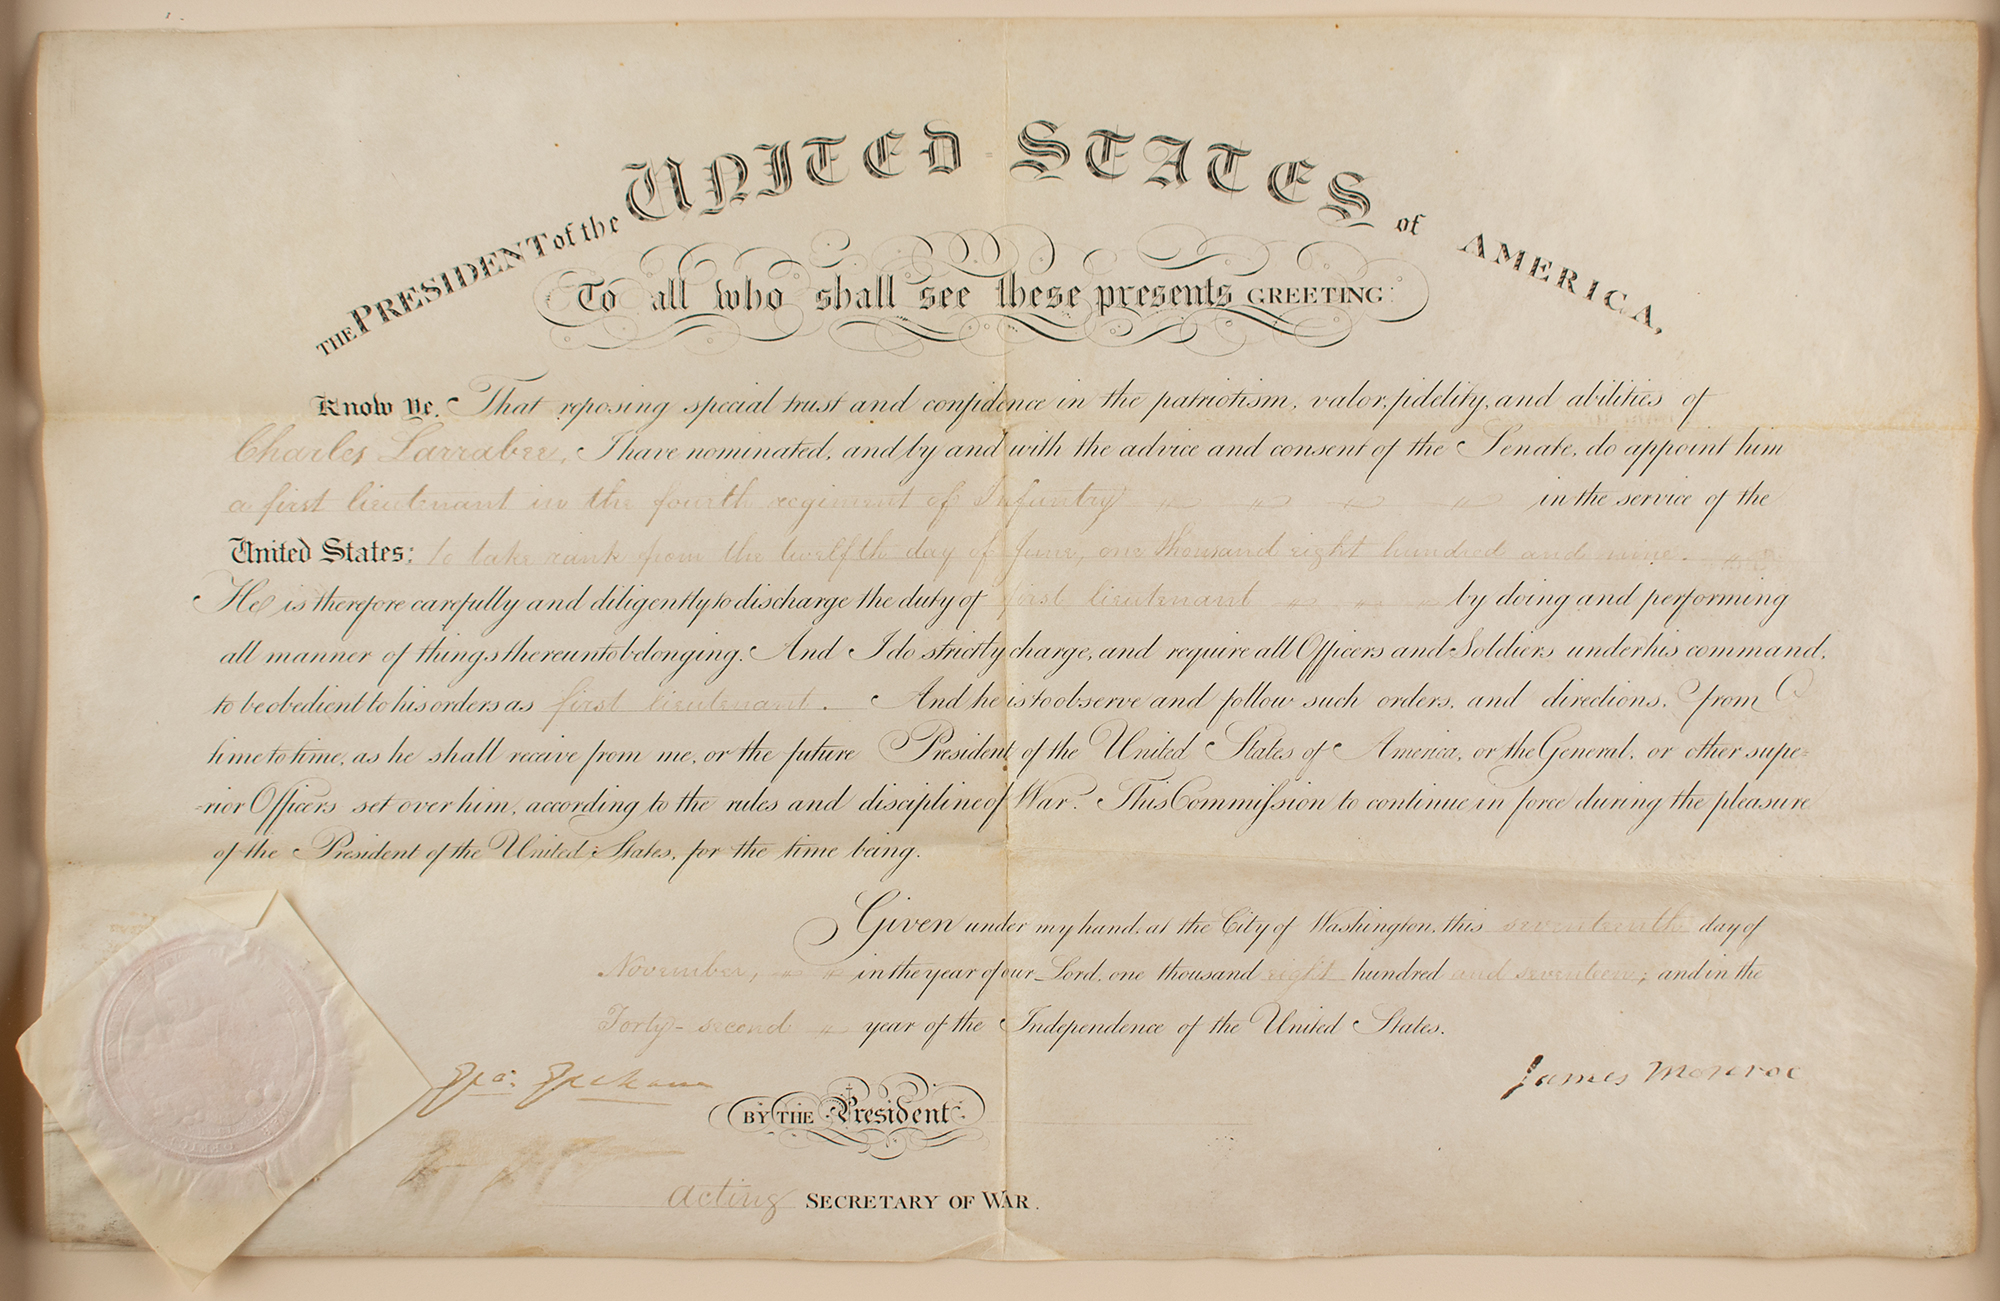 THE PRESIDENT of the UNITED STATES of AMERICA,
To all who shall see these presents GREETING:
Know Ye, That reposing special trust and confidence in the patriotism, valor, fidelity, and abilities of
Charles Larrabee, I have nominated, and by and with the advice and consent of the Senate, do appoint him
a first lieutenant in the fourth regiment of Infantry in the service of the
United States: to take rank from the twelfth day of June, one thousand eight hundred and nine.
He is therefore carefully and diligently to discharge the duty of first lieutenant by doing and performing
all manner of things thereunto belonging. And I do strictly charge, and require all Officers and Soldiers under his command,
to be obedient to his orders as first lieutenant. And he is to observe and follow such orders, and directions, from
time to time, as he shall receive from me, or the future President of the United States of America, or the General, or other supe-
-rior Officers set over him, according to the rules and discipline of War. This Commission to continue in force during the pleasure
of the President of the United States, for the time being.
Given under my hand, at the City of Washington, this seventeenth day of
November, in the year of our Lord, one thousand eight hundred and seventeen; and in the
Forty-second year of the Independence of the United States.
James Monroe
BY THE President
acting SECRETARY OF WAR.